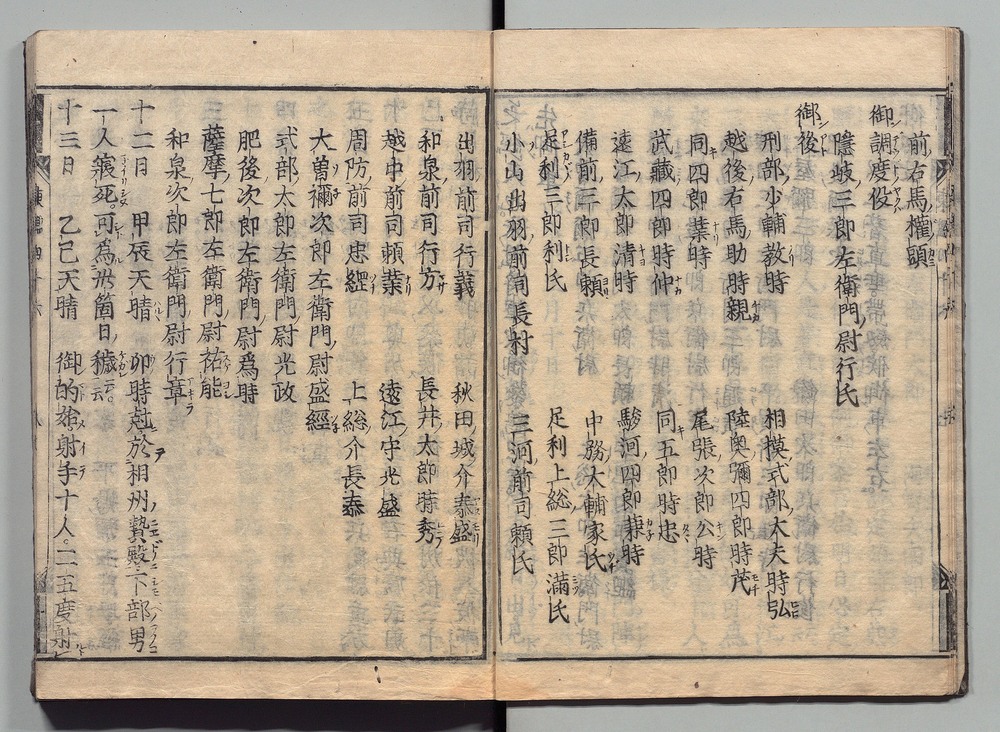 前右馬權頭
御調度役
隱岐三郎左衛門尉行氏
御後
刑部少輔教時 相摸式部大夫時弘
越後右馬助時親 陸奥彌四郎時茂
同四郎業時 尾張次郎公時
武藏四郎時仲 同五郎時忠
遠江太郎清時 駿河四郎兼時
備前三郎長頼 中務大輔家氏
足利三郎利氏 足利上総三郎滿氏
小山出羽前司長村 三河前司頼氏
出羽前司行義 秋田城介泰盛
和泉前司行方 長井太郎時秀
越中前司頼業 遠江守光盛
周防前司忠經 上総介長泰
大曽禰次郎左衛門尉盛經
式部太郎左衛門尉光政
肥後次郎左衛門尉爲時
薩摩七郎左衛門尉祐能
和泉次郎左衛門尉行章
十二日 甲辰天晴 卯時於相州贄殿下部男
一人死。可為卅箇日穢云云
十三日 乙巳天晴 御的始射手十人。二五度射